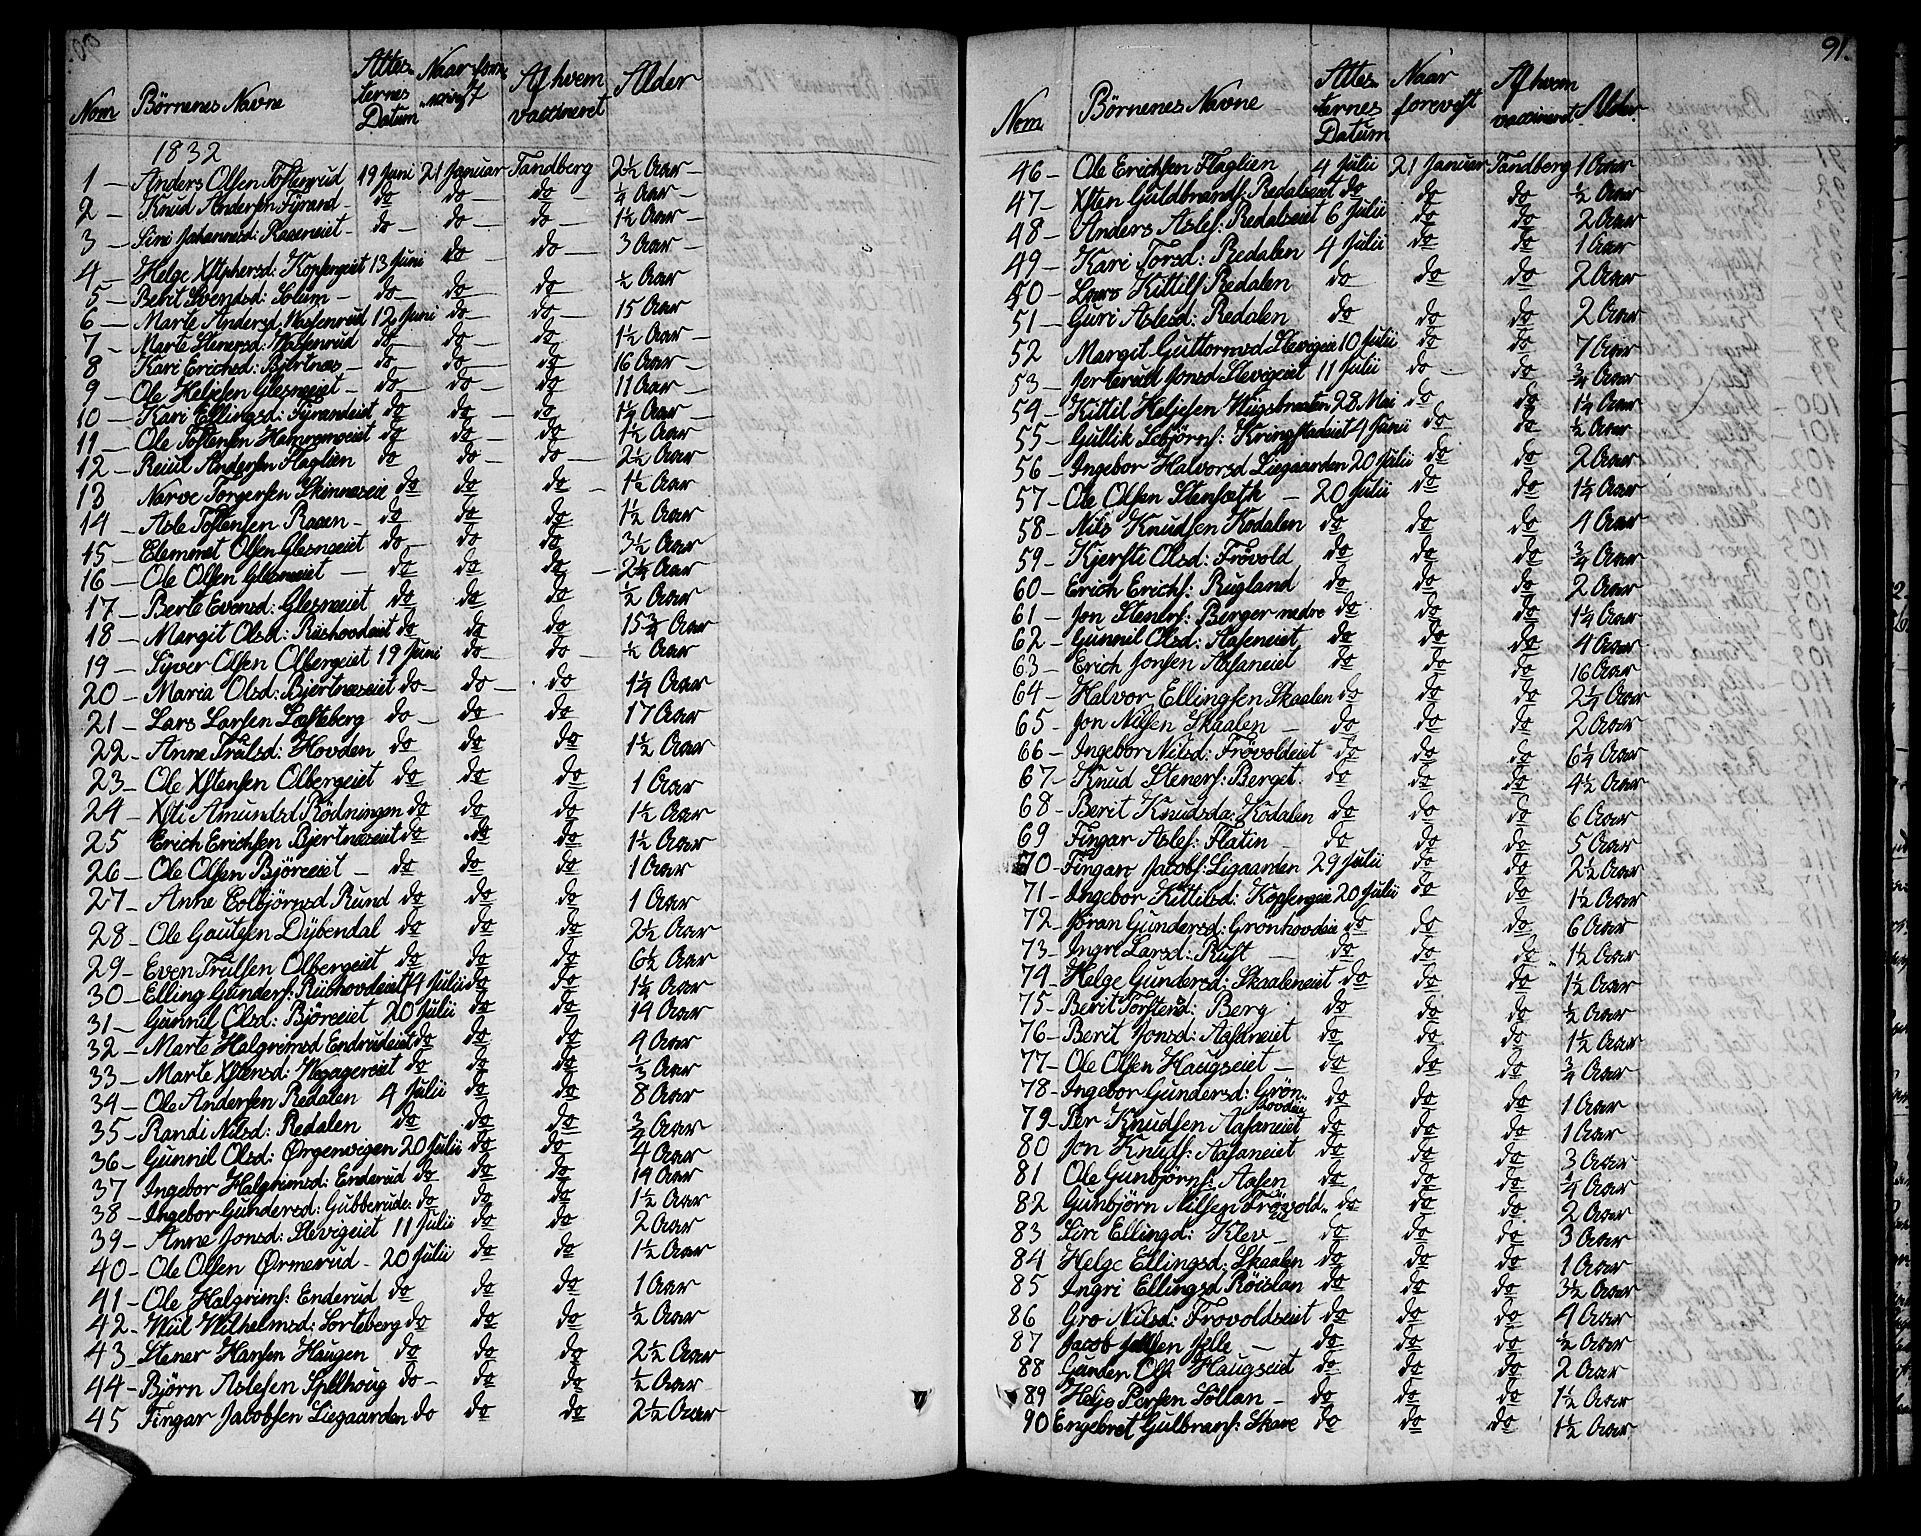 90.
Nom Børnenes Navne Attesternes Datum Naar forevist Af hvem vaccineret Alder
1832
1 — Anders Olsen Tostenrud 19 Juni 21 Januar Tandberg 2½ Aar
2 — Knud Andersen Fyrand do do do ¼ Aar
3 — Siri Johannesd: Raaeneiet do do do 1½ Aar
4 — Helge Xstphersd: Kopsengeiet 13 Juni do do 3 Aar
5 — Berit Svendsd: Solum do do do ½ Aar
6 — Marte Andersd: Wasenrud 12 Juni do do 15 Aar
7 — Marte Stenersd: Wasenrud do do do 1½ Aar
8 Kari Erichsd: Bjertnæs do do do 16 Aar
9 — Ole Heljesen Glesneeiet do do do 11 Aar
10 — Kari Ellingsd: Fyrandeiet do do do 1¼ Aar
11 — Ole Tostensen Hamremoeiet do do do 1½ Aar
12 — Reiul Andersen Flaglien do do do 2½ Aar
13 Narve Torgersen Skinneseie do do do 1½ Aar
14 — Asle Tostensen Raaen do do do 1½ Aar
15 — Elemmet Olsen Glesneeiet do do do 3½ Aar
16 — Ole Olsen Glesneeiet do do do 2¼ Aar
17 — Berte Evensd: Glesneeiet do do do ½ Aar
18 — Margit Olsd: Riishovdeiet do do do 15¾ Aar
19 — Syver Olsen Olbergeiet 19 Juni do do ½ Aar
20 — Maria Olsd: Bjertnæseiet do do do 1¼ Aar
21 — Lars Larsen Løsteberg do do do 17 Aar
22 — Anne Trulsd: Hovden do do do 1½ Aar
23 — Ole Xstensen Olbergeiet do do do 1 Aar
24 — Xsti Amundsd Rödningen do do do 1½ Aar
25 Erich Erichsen Bjertnæseiet do do do 1½ Aar
26 — Ole Olsen Björeeiet do do do 1 Aar
27 — Anne Eolbjörnsd Rund do do do 1 Aar
28 — Ole Gautesen Dybendal do do do 2½ Aar
29 — Even Trulsen Olbergeiet do do do 6½ Aar
30 — Elling Gunders: Riishovdeiet 4 Julii do do 1½ Aar
31 — Gunnil Olsd: Björeeiet 20 Julii do do 14 Aar
32 — Marte Halgrimsd Endrudeiet do do do 4 Aar
33 — Marte Xstensd: Wegagereiet do do do ⅓ Aar
34 — Ole Andersen Redalen 4 Julii do do 8 Aar
35 — Randi Nilsd: Redalen do do do ¾ Aar
36 — Gunnil Olsd: Ørgenvigen 20 Julii do do 4 Aar
37 Ingebor Halgrimsd: Enderud do do do 14 Aar
38 — Ingebor Gundersd: Gubberude: do do do 1½ Aar
39 — Anne Jonsd: Slevigeiet 11 Julii do do 2 Aar
40 — Ole Olsen Ørmerud 20 Julii do do 1½ Aar
41 — Ole Halgrims: Enderud do do do 1 Aar
42 — Wiil Wilhelmsd: Sorteberg do do do ½ Aar
43 — Stener Hansen Haugen do do do 2½ Aar
44 — Björn Aslesen Spelhoug do do do ½ Aar
45 Fingar Jacobsen Liegaarden do do do 2½ Aar
91.
Nom Børnenes Navne Attesternes Datum Naar forevist Af hvem vaccineret Alder
46 — Ole Erichsen Flaglien 4 Julii 21 Januar Tandberg 1 Aar
47 — Xsten Guldbrands: Redalseiet do do do ½ Aar
48 — Anders Asles: Redalseiet 6 Julii do do 2 Aar
49 — Kari Torsd: Redalen 4 Julii do do 1 Aar
50 — Lars Kittils Redalen do do do 2 Aar
51 — Guri Aslesd: Redalen do do do 2 Aar
52 Margit Guttormsd Slevigeie 10 Julii do do 7 Aar
53 — Jertrud Jonsd Slevigeiet 11 Julii do do ¾ Aar
54 — Kittil Heljesen Wiigsbraaten 28. Mai do do 1¼ Aar
55 — Gullik Lebjörns: Kringstadeiet 4 Junii do do ½ Aar
56 — Ingebor Halvorsd Liegaarden 20 Julii do do 2 Aar
57 — Ole Olsen Stenseth 20 Julii do do 1¼ Aar
58 — Nils Knudsen Kodalen do do do 4 Aar
59 — Kjersti Olsd: Frövold do do do ¾ Aar
60 — Erich Erichs: Rugland do do do 2 Aar
61 — Jon Steners: Berger nedre do do do 1¼ Aar
62 — Gunnil Olsd: Aaseneiet do do do 4 Aar
63 — Erich Jonsen Aasaneiet do do do 16 Aar
64 — Halvor Ellingsen Skaalen do do do 2¼ Aar
65 — Jon Nilsen Skaalen do do do 2 Aar
66 — Ingebor Nilsd: Frövoldeiet do do do 6¼ Aar
67 — Knud Steners: Berget. do do do 4½ Aar
68 — Berit Knudsda: Kodalen do do do 6 Aar
69 Fingar Asles: Flatin do do do 5 Aar
70 — Fingar Jacobs: Ligaarden 29 Julii do do 2½ Aar
71 — Ingebor Kittilsd: Kopsengeie 20 Julii do do 1½ Aar
72 — Jöran Gundersd: Gronhovdeie do do do 6 Aar
73 — Ingri Larsd: Rust do do do 1½ Aar
74 — Helge Gundersd: Skaaleneiet do do do 1½ Aar
75 — Berit Torstensd: Berg do do do ½ Aar
76 — Berit Jonsd: Aasaneiet do do do 1½ Aar
77 — Ole Olsen Haugseiet do do do ¾ Aar
78 — Ingebor Gundersd: Grönhovdeie do do do 1 Aar
79 — Per Knudsen Aasaneiet do do do 1 Aar
80 Jon Knuts: Aasaneiet do do do 3 Aar
81 Ole Gunbjörns: Aasen do do do ¾ Aar
82 Gunbjörn Nilsen Frövold„eie do do do 2 Aar
83 Siri Ellingd: Klev do do do 3 Aar
84 Helge Ellingsd: Skaalen do do do 1 Aar
85 Ingri Ellingsd Röislan do do do 3½ Aar
86 Gro Nilsd: Frovoldseiet do do do 4 Aar
87 Jacob Jellsen Jelle do do do ½ Aar
88 Gunder Ols: Haugseiet do do do 2 Aar
89 Helje Persen Sollan do do do 1½ Aar
90 Engebret Gulbrans: Skare do do do 1½ Aar